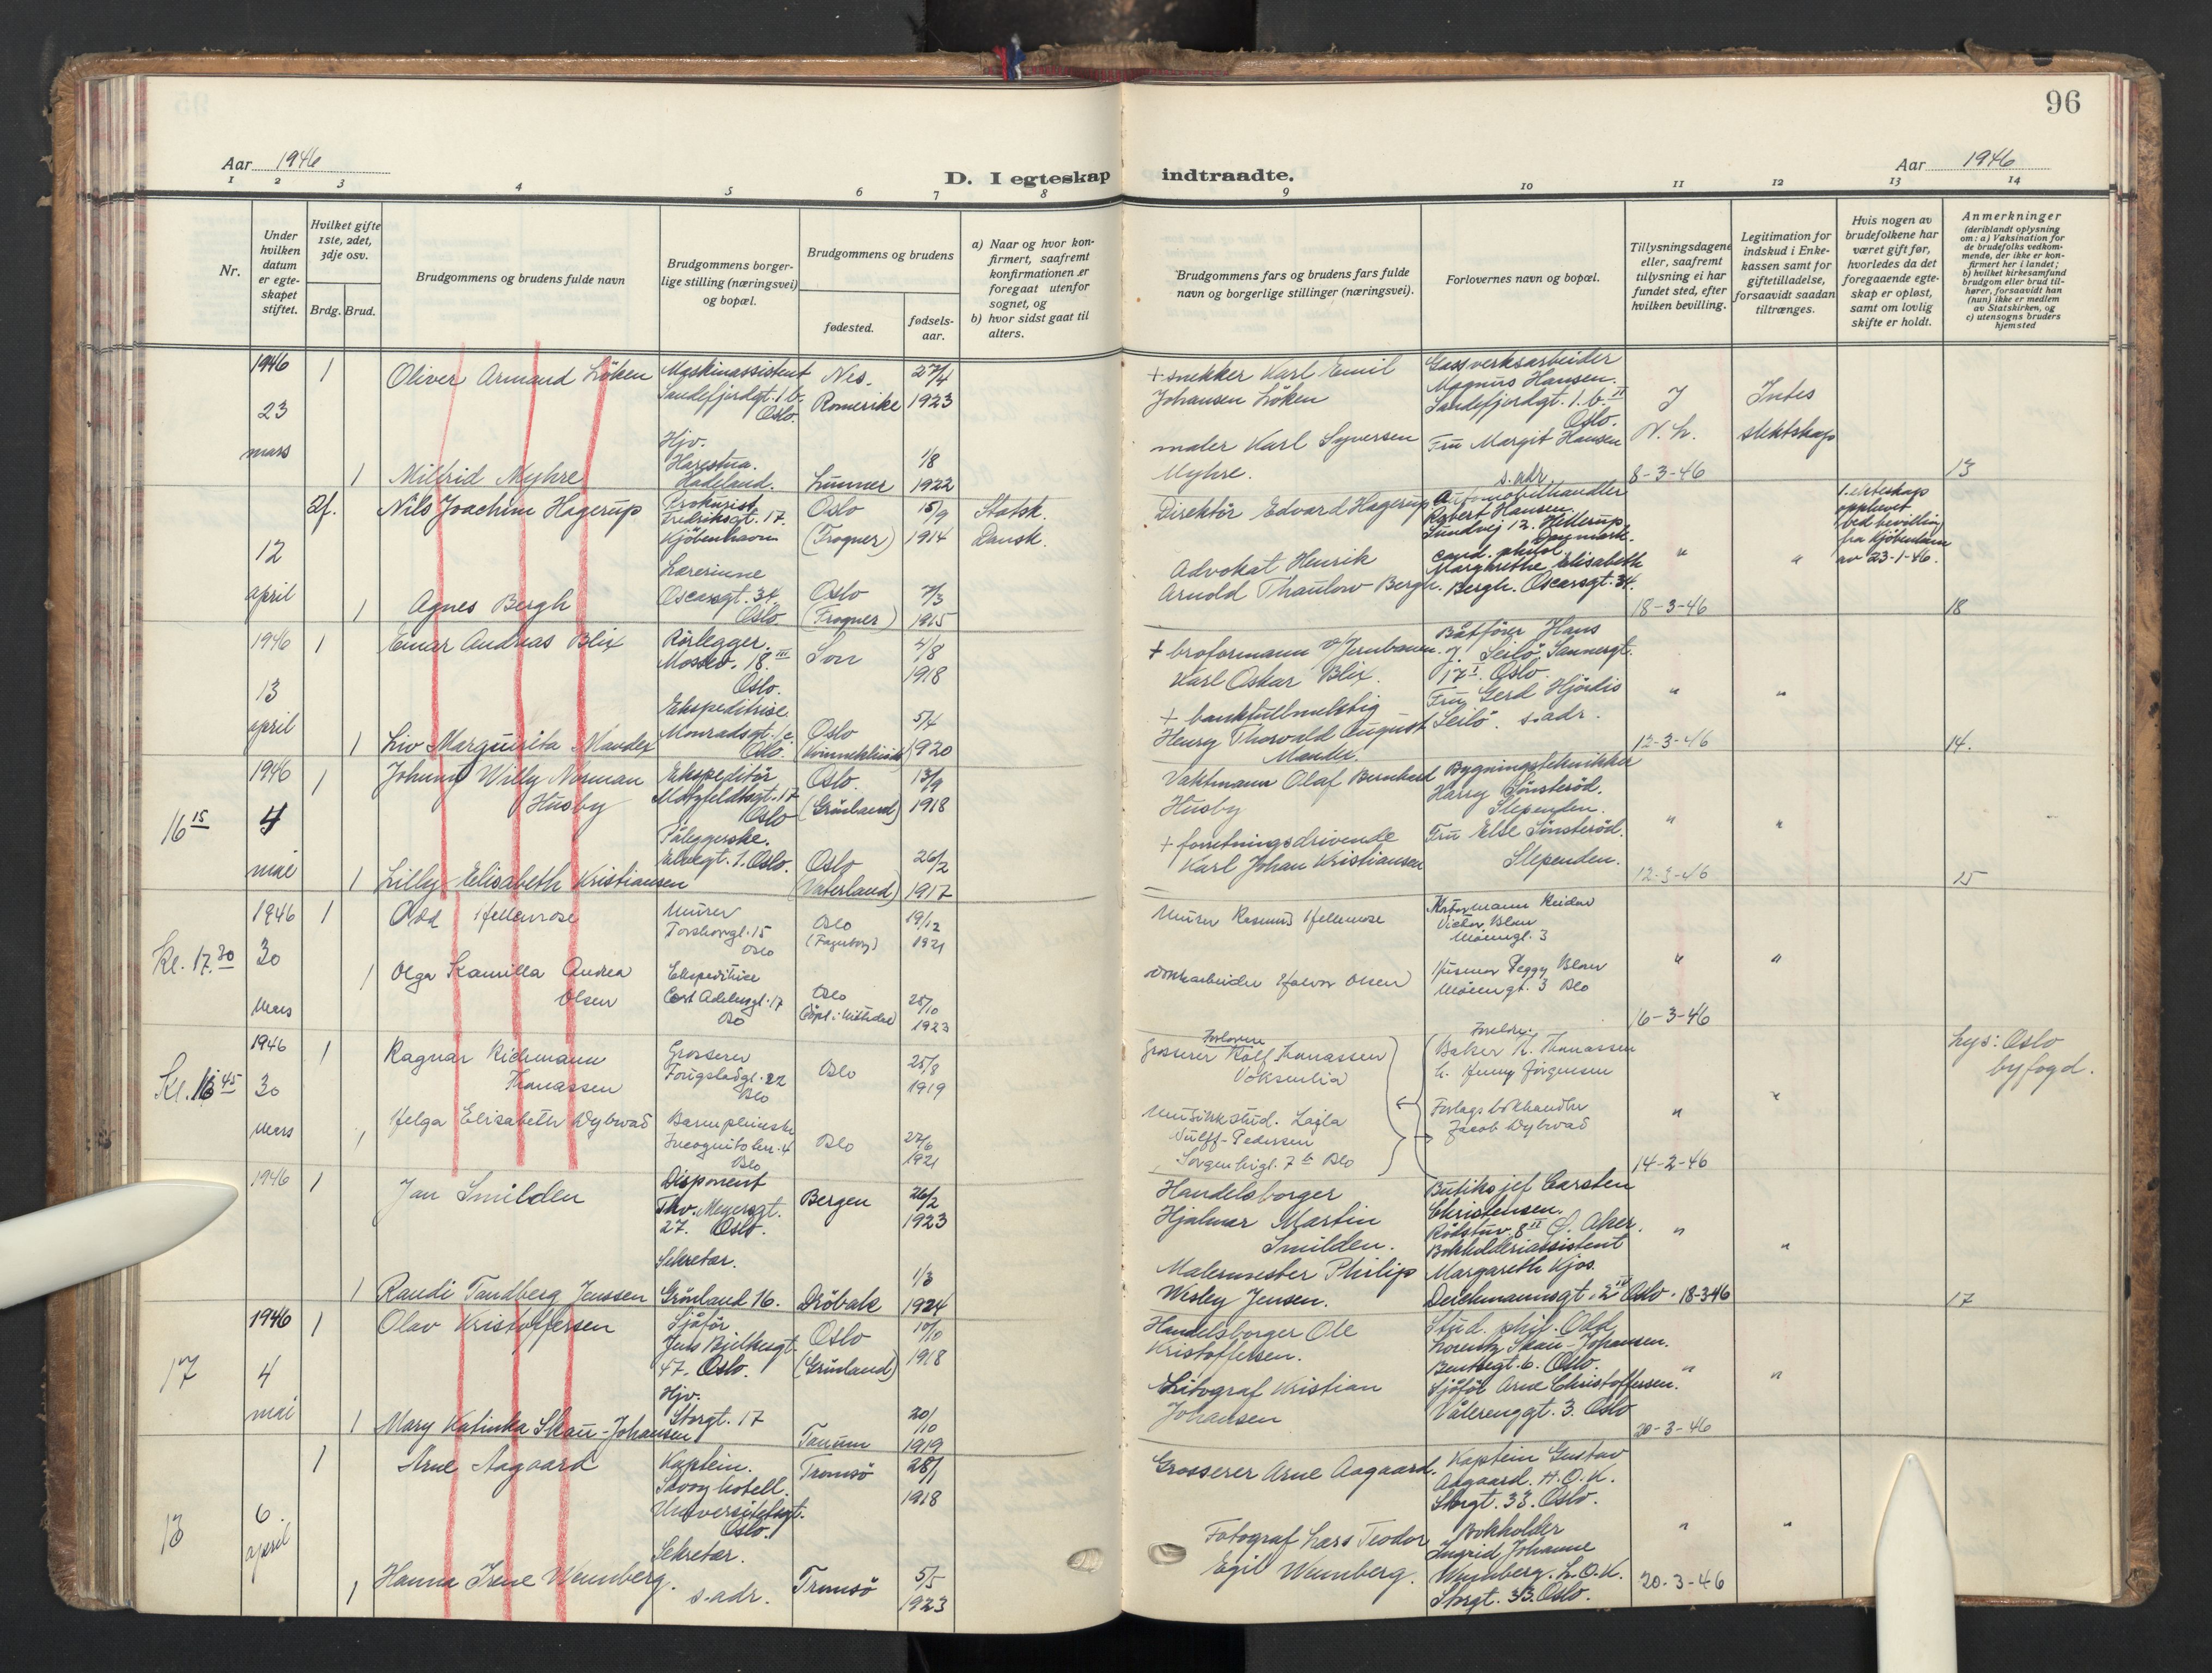 96
Aar 1946
D. I egteskap indtraadte.
Aar 1946
1 2 3 4 5 6 7 8 9 10 11 12 13 14
Nr.
Under hvilken datum er egteskapet stiftet.
Hvilket gifte 1ste, 2det, 3dje osv.
Brdg. Brud.
Brudgommens og brudens fulde navn
Brudgommens borgerlige stilling (næringsvei) og bopæl.
Brudgommens og brudens
fødested.
fødselsaar.
a) Naar og hvor konfirmert, saafremt konfirmationen er foregaat utenfor sognet, og
b) hvor sidst gaat til alters.
Brudgommens fars og brudens fars fulde navn og borgerlige stillinger (næringsvei).
Forlovernes navn og bopæl.
Tillysningsdagene eller, saafremt tillysning ei har fundet sted, efter hvilken bevilling.
Legitimation for indskud i Enkekassen samt for giftetilladelse, forsaavidt saadan tiltrænges.
Hvis nogen av brudefolkene har været gift før, hvorledes da det foregaaende egteskap er opløst, samt om lovlig skifte er holdt.
Anmerkninger
(deriblandt oplysning om: a) Vaksination for de brudefolks vedkommende, der ikke er konfirmert her i landet; b) hvilket kirkesamfund brudgom eller brud tilhører, forsaavidt han (hun) ikke er medlem av Statskirken, og c) utensogns bruders hjemsted
1946 23 mars
1 Oliver Armand Löken
Maskinassistent
Sandefjordgt. 1 b.
Oslo.
Nes. Romerike
27/4 1923
+ snekker Karl Emil
Johansen Löken
Gassverksarbeider
Magnus Hansen.
Sandefjordgt. 1. b. II
Oslo.
J N. L.
Intet slektskap
1 Milfrid Myhre
Hjv.
Harestua.
Hadeland.
Lunner
1/8 1922
maler Karl Syversen
Myhre.
Fru Margit Hansen
s. adr.
8-3-46
13
12 april
2f. Nils Joachim Hagerup
Prokurist
Fredriksgt. 17.
Kjöbenhavn
Oslo (Frogner)
15/9 1914
Statsk.
Dansk.
Direktör Edvard Hagerup
Automobilhandler
Robert Hansen.
Sundvej 12. Hellerup
Danmark.
1. ekteskap
opplöst
ved bevilling
fra Kjöbenhavn
av 23-1-46.
1 Agnes Bergh
Lærerinne
Oscarsgt. 34
Oslo.
Oslo (Frogner)
7/3 1915
Advokat Henrik
Arnold Thaulow Bergh.
cand. philol.
Margrethe Elisabeth
Bergh. Oscarsgt. 34.
" "
18-3-46
18
1946 13 april
1 Einar Andreas Blix
Rörlegger.
Mossev. 18. III
Oslo.
Son
4/8 1918
+ broformann v/Jernbanen.
Karl Oskar Blix.
Båtförer Hans
J. Seilö. Sannergt.
17 I. Oslo.
1 Liv Marguerita Mander
Ekspeditrise.
Monradsgt. 1c
Oslo.
Oslo (Kvinneklinikk)
5/4 1920
+ bankfullmektig
Henry Thorvald August
Mander.
Fru Gerd Hjördis
Seilö. s. adr.
" "
12-3-46
14.
16 15
1946 4 mai
1 Johnny Willy Norman
Husby
Ekspeditör
Motzfeldtsgt. 17
Oslo
Oslo. (Grönland)
13/9 1918
Vaktmann Olaf Bernhard
Husby
Bygningstekniker
Harry Sönsteröd.
Slependen.
1 Lilly Elisabeth Kristiansen
Påleggerske.
Elvegt. 1. Oslo.
Oslo (Vaterland)
26/2 1917
+ forretningsdrivende
Karl Johan Kristiansen
Fru Else Sönsteröd.
Slependen.
" "
12-3-46
15
Kl. 17.30
1946 30 Mars
1 Odd Hellenrose
Murer
Torshovgt. 15
Oslo
Oslo (Fagerborg)
19/12 1921
Murer Rasmus Hellenrose
Reidar
Victor Blom
3
1 Olga Kamilla Andrea
Olsen
Ekspeditrice
Cort Adelersgt. 17
Oslo
Oslo
25/10 1923
Halvor Olsen
Husmor Peggy Blom
3 Oslo
" "
16-3-46
Kl. 16 45
1946 30 Mars
1 Ragnar Richmann
Thomassen
Grosserer
22
Oslo
Oslo
25/8 1919
Forlovere
Grosserer Rolf Thomassen
Voksenlia
Foreldre.
Baker R. Thomassen
h. Jenny Jörgensen
Lys: Oslo
byfogd.
1 Helga Elisabeth Dybwad
Barnepleierske
Incognito terr. 4
Oslo
Oslo
27/6 1921
Musikkstud. Lajla
Wulff-Pedersen
Sorgenfrigt. 7 b Oslo
Forlagsbokhandler
Jacob Dybwad
" "
14-2-46
1946
1 Jan Smilden
Disponent
Thv. Meyersgt.
27. Oslo.
Bergen
26/2 1923
Handelsborger
Hjalmar Martin
Smilden.
Butiksjef Carsten
Christensen.
Rödstuv. 8 II Ö. Aker.
1 Randi Tandberg Jenssen
Sekretær.
Grönland 16.
Dröbak
1/3 1924
Malermester Philip
Wesley Jensen.
Bokholderiassistent
Margareth Kjos.
Deichmannsgt. 2 IV Oslo.
" "
18-3-46
17
17
1946 4 mai
1 Olav Kristoffersen
Sjåför
Jens Bjelkesgt.
47. Oslo.
Oslo (Grönland)
10/10 1918
Handelsborger Ole
Kristoffersen.
Stud. phil. Odd
Lorentz Skau-Johansen.
Bentsegt. 6. Oslo.
1 Mary Katinka Skau-Johansen
Hjv.
Storgt. 17
Tanum
20/10 1919
Litograf Kristian
Johansen
Sjåför Arne Christoffersen.
Vålerenggt. 3. Oslo
" "
20-3-46
13
6. april
1 Arne Aagaard
Kaptein.
Savoy hotell.
Universitetsgt.
Oslo.
Tromsö
28/1 1918
Grosserer Arne Aagaard.
Kaptein Gustav
Aagaard. H.O.K.
Storgt. 33. Oslo.
1 Hanna Irene Wennberg.
Sekretær.
s. adr.
Tromsö
5/5 1923
Fotograf Lars Teodor
Egil Wennberg.
Bokholder
Ingrid Johanne
Wennberg. L.O.K.
Storgt. 33. Oslo.
" "
20-3-46